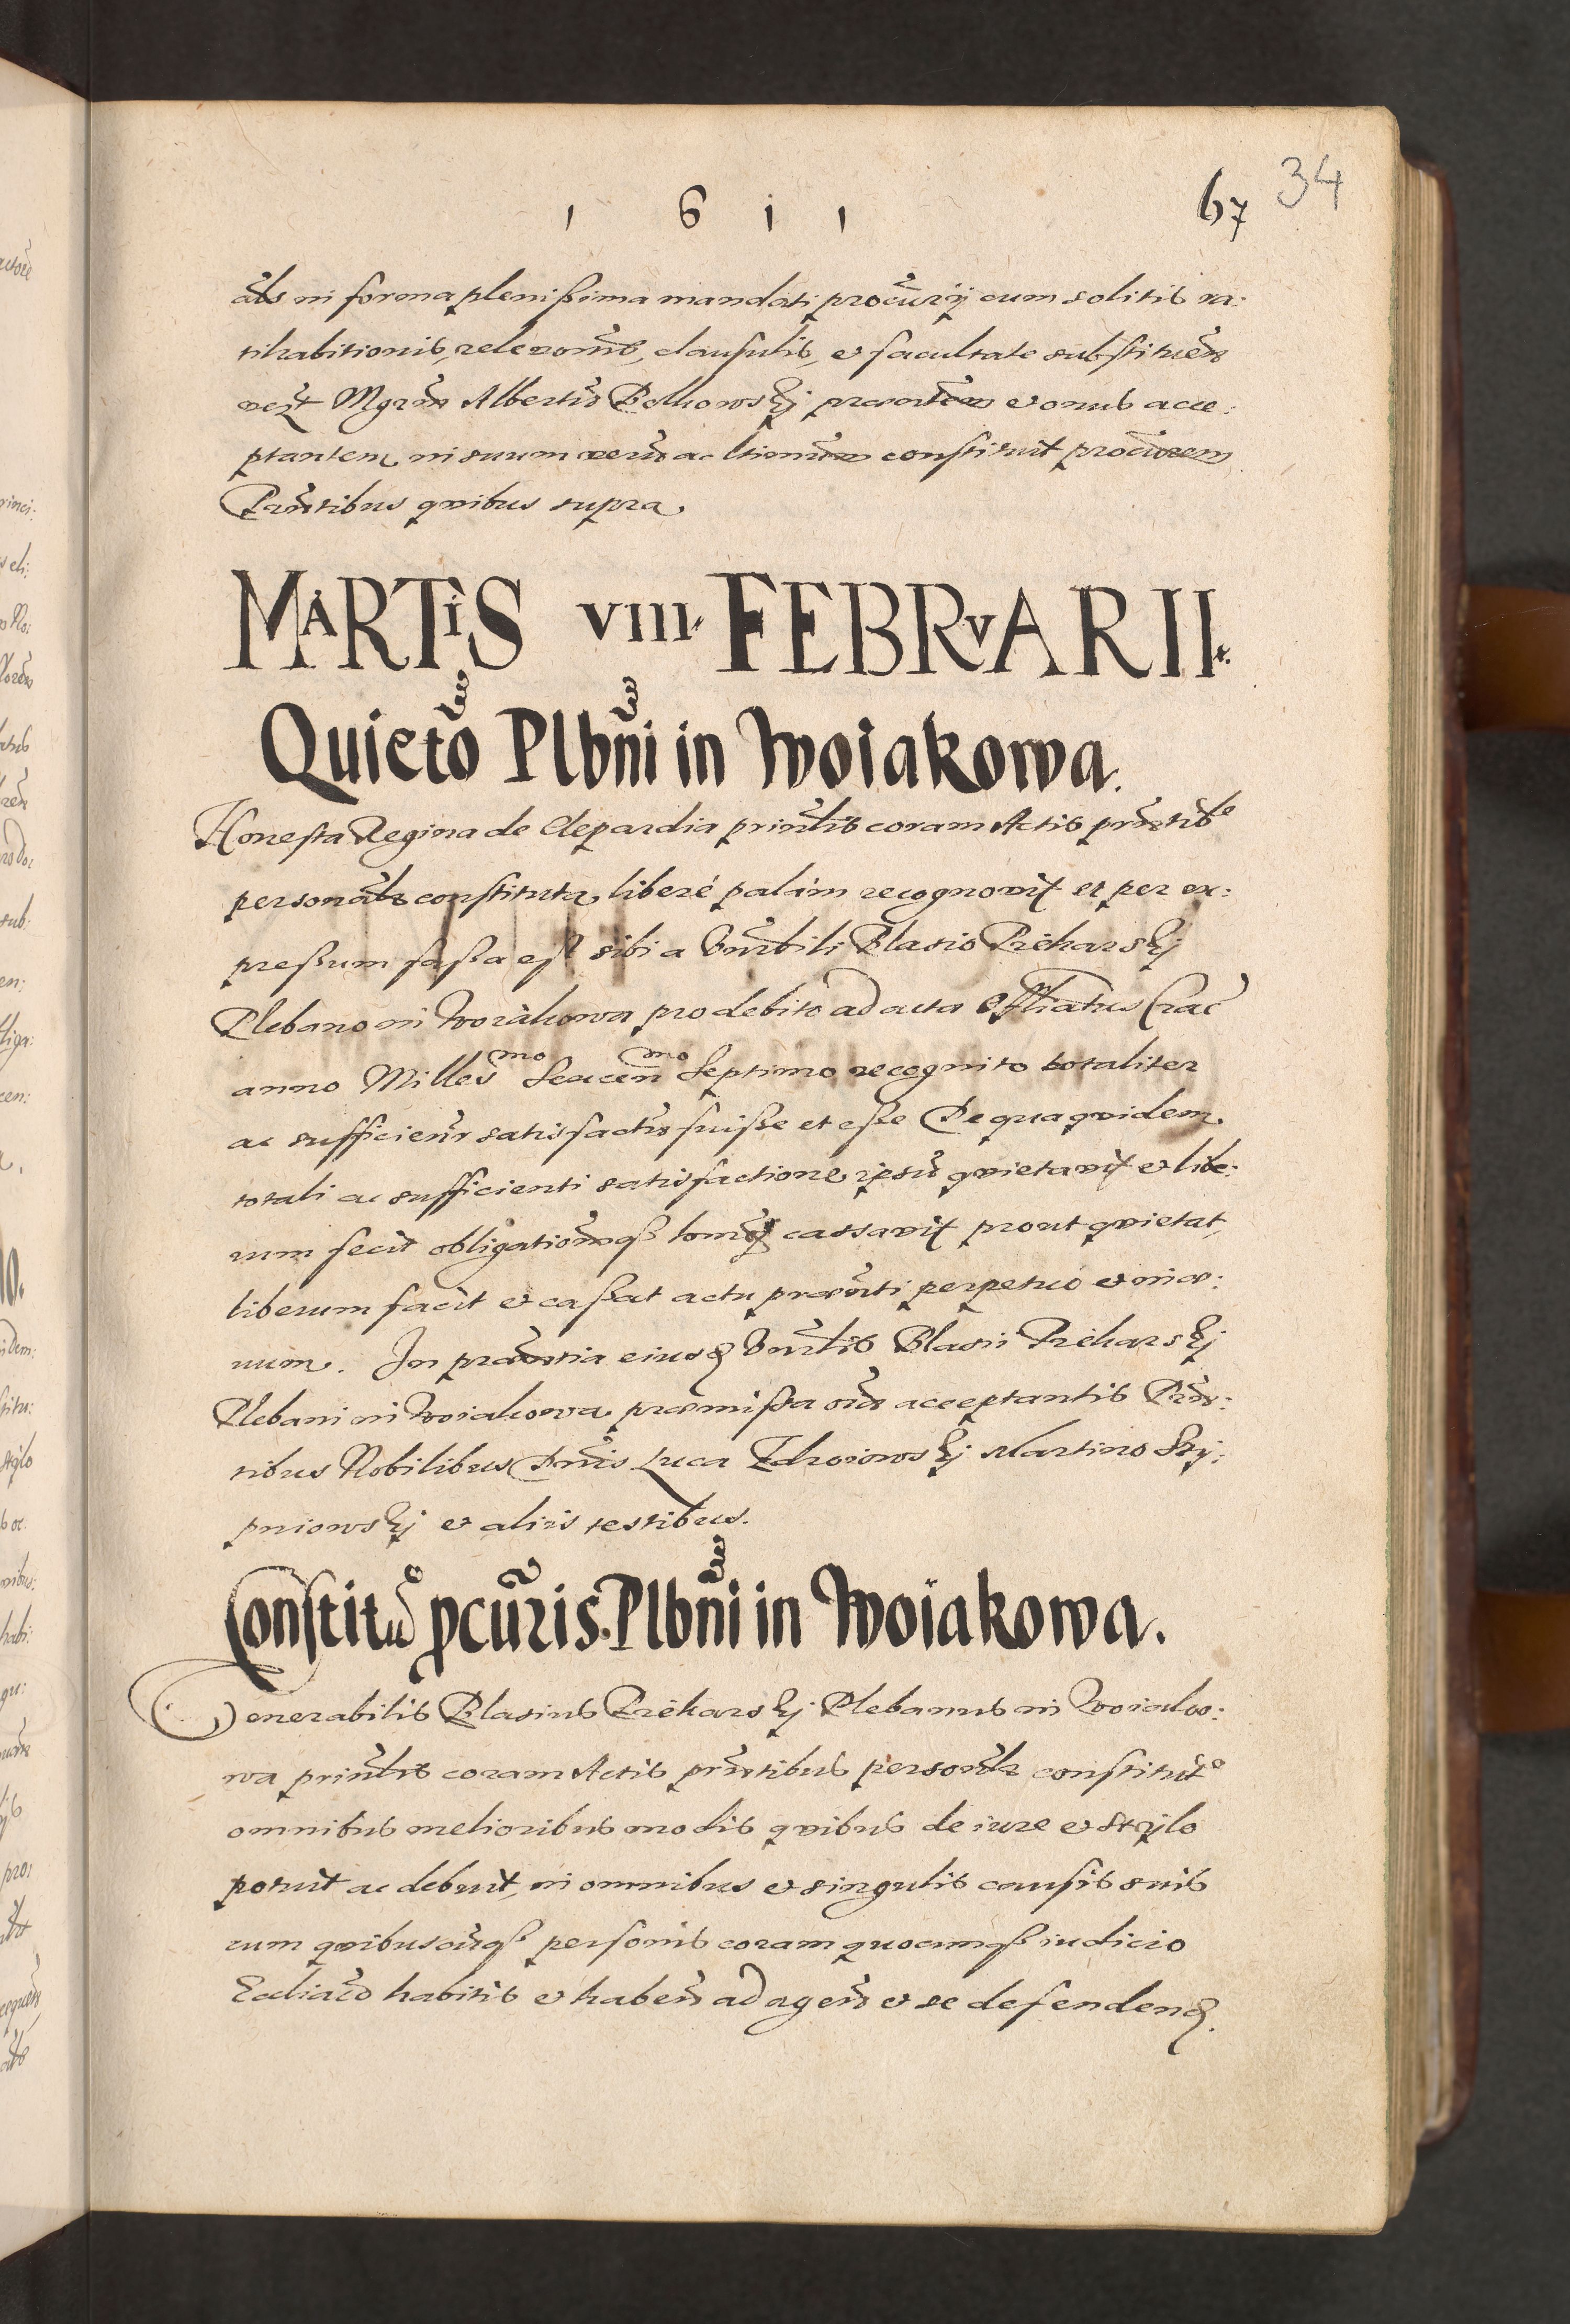 1 6 1 1
67 34
als in forma plenißima mandati procurÿ cum solitis ra:
tihabitionis, relevonis, clausulis, et facultate substituen
nec̃t Mgrm Albertũ præsentem et onus acce:
ptantem in suum verũ ac ltimum constituit procurem
Prñtibus quibus supra.
MARTIS VIII. FEBRVARII.
Quietõ Plbñi in Woiakowa.
Honesta Regina de Clepardia prinlis coram Actis prñtibs
personalr constituta, liberé palám recognovit et per ex:
preßum faßa est sibi a Vnrbili Blasio Piekarskÿ
Plebano in Woiakowa pro debito ad acta Offliatus Crac̃
anno Milles̃mo Sexcen̄mo Septimo recognito totaliter
ac sufficienr satisfactũ fuiße et eße De qua quidem
totali ac sufficienti satisfactione ipsũ quietavit et libe:
rum fecit obligationemqß cassavit prout quietat,
liberum facit et caßat actu præsenti perpetuo et in æ:
uum. In præsentia eiusd Vnrlis Blasii Piekarskÿ
Plebani in Woiakowa præmißa oĩa acceptantis Prñ:
tibus Nobilibus Dnis Luca Zdroiowskÿ Martino Skÿ:
pniowskÿ et aliis testibus.
Constitũ pcũris. Plbñi in Woiakowa.
Venerabilis Blasius Piekarskÿ Plebanus in Woiako:
wa prinlis coram Actis prñtibus personlr constitut9
omnibus melioribus modis quibus de iure et stÿlo
potuit ac debuit, in omnibus et singulis causis suis
cum quibusvisqß personis coram quocunqß iudicio
Ecclia͠co habitis et haben̄ ad agen̄d et se defendend.